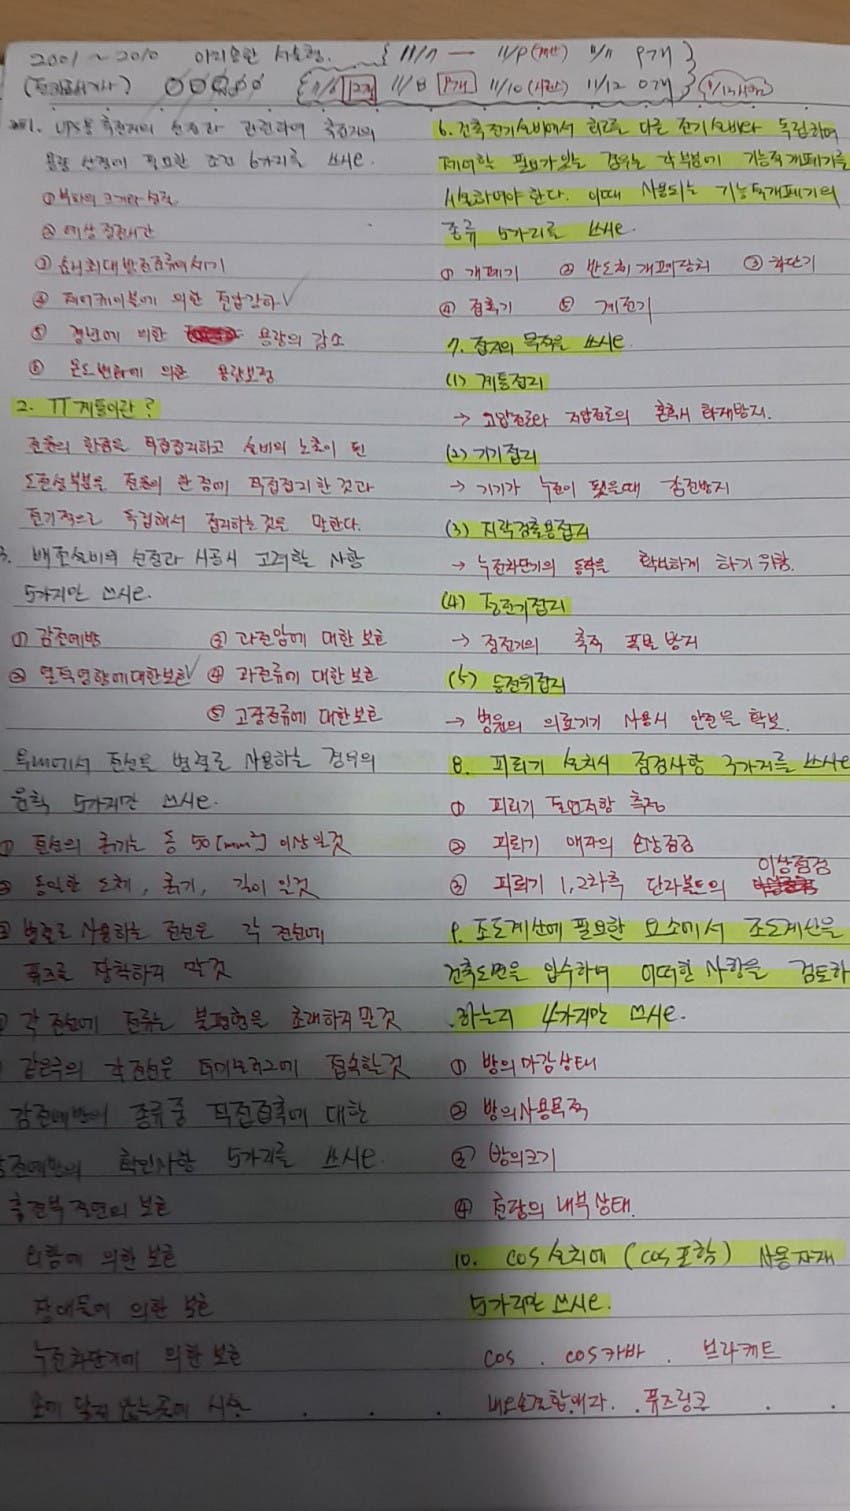 2001 ~ 2010
1. UPS용 축전지의 선정과 관련하여 축전지의
용량 선정에 필요한 조건 6가지를 쓰시오.
① 부하의 크기와 성질
② 예상 정전시간
③ 순시최대 방전전류의 세기
④ 제어케이블에 의한 전압강하 ✓
⑤ 경년에 의한 용량의 감소
⑥ 온도변화에 의한 용량보정
2. TT계통이란?
전원의 한점을 직접접지하고 설비의 노출이 된
도전성부분을 전원의 한 점에 직접접지한 것과
전기적으로 독립해서 접지하는것을 말한다.
3. 배선설비의 선정과 시공시 고려할 사항
5가지만 쓰시오.
① 감전예방 ③ 과전압에 대한 보호
② 열적영향에대한보호 ✓ ④ 과전류에 대한 보호
⑤ 고장전류에 대한보호
옥내에서 전선을 병렬로 사용하는 경우의
원칙 5가지만 쓰시오.
① 전선의 굵기는 동 50[mm²] 이상일것
② 동일한 도체, 굵기, 길이 일것
③ 병렬로 사용하는 전선은 각 전선에
퓨즈로 장착하지 말것
각 전선에 전류는 불평형을 초래하지말것
같은극의 각 전선은 터미널러그에 접속할것
감전예방의 종류 중 직접접촉에 대한
감전예방의 확인사항 5가지를 쓰시오.
충전부 절연의 보호
외함에 의한 보호
장애물에 의한 보호
누전차단기에 의한 보호
손에 닿지 않는곳에 시설
6. 건축전기설비에서 회로를 다른 전기설비와 독립하여
제어할 필요가 있는 경우는 각 부분에 기능적개폐기를
시설하여야 한다. 이때 사용되는 기능적개폐기의
종류 5가지를 쓰시오.
① 개폐기 ② 반도체 개폐장치 ③ 차단기
④ 접촉기 ⑤ 계전기
7. 접지의 목적을 쓰시오.
(1) 계통접지
→ 고압전로와 저압전로의 혼촉시 화재방지.
(2) 기기접지
→ 기기가 누전이 됐을때 감전방지
(3) 지락검출용접지
→ 누전차단기의 동작을 확실하게 하기 위함.
(4) 정전기접지
→ 정전기의 축적 폭발 방지
(5) 등전위접지
→ 병원의 의료기기 사용시 안전을 확보.
8. 피뢰기 설치시 점검사항 3가지를 쓰시오
① 피뢰기 절연저항 측정
② 피뢰기 애자의 손상점검
③ 피뢰기 1,2차측 단자볼트의 이상점검
9. 조도계산에 필요한 요소에서 조도계산을
건축도면을 입수하여 어떠한 사항을 검토하
하는지 4가지만 쓰시오.
① 방의마감상태
② 방의사용목적
③ 방의크기
④ 천장의 내부상태.
10. COS 설치에 (COS 포함) 사용자재
5가지만 쓰시오.
COS . COS카바 . 브라케트
내오손결합애자 . 퓨즈링크